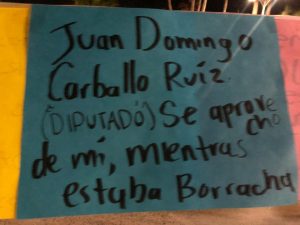 Juan Domingo
Carballo Ruiz.
(DIPUTADO) Se aprovecho
de mi, mientras
estaba Borracha